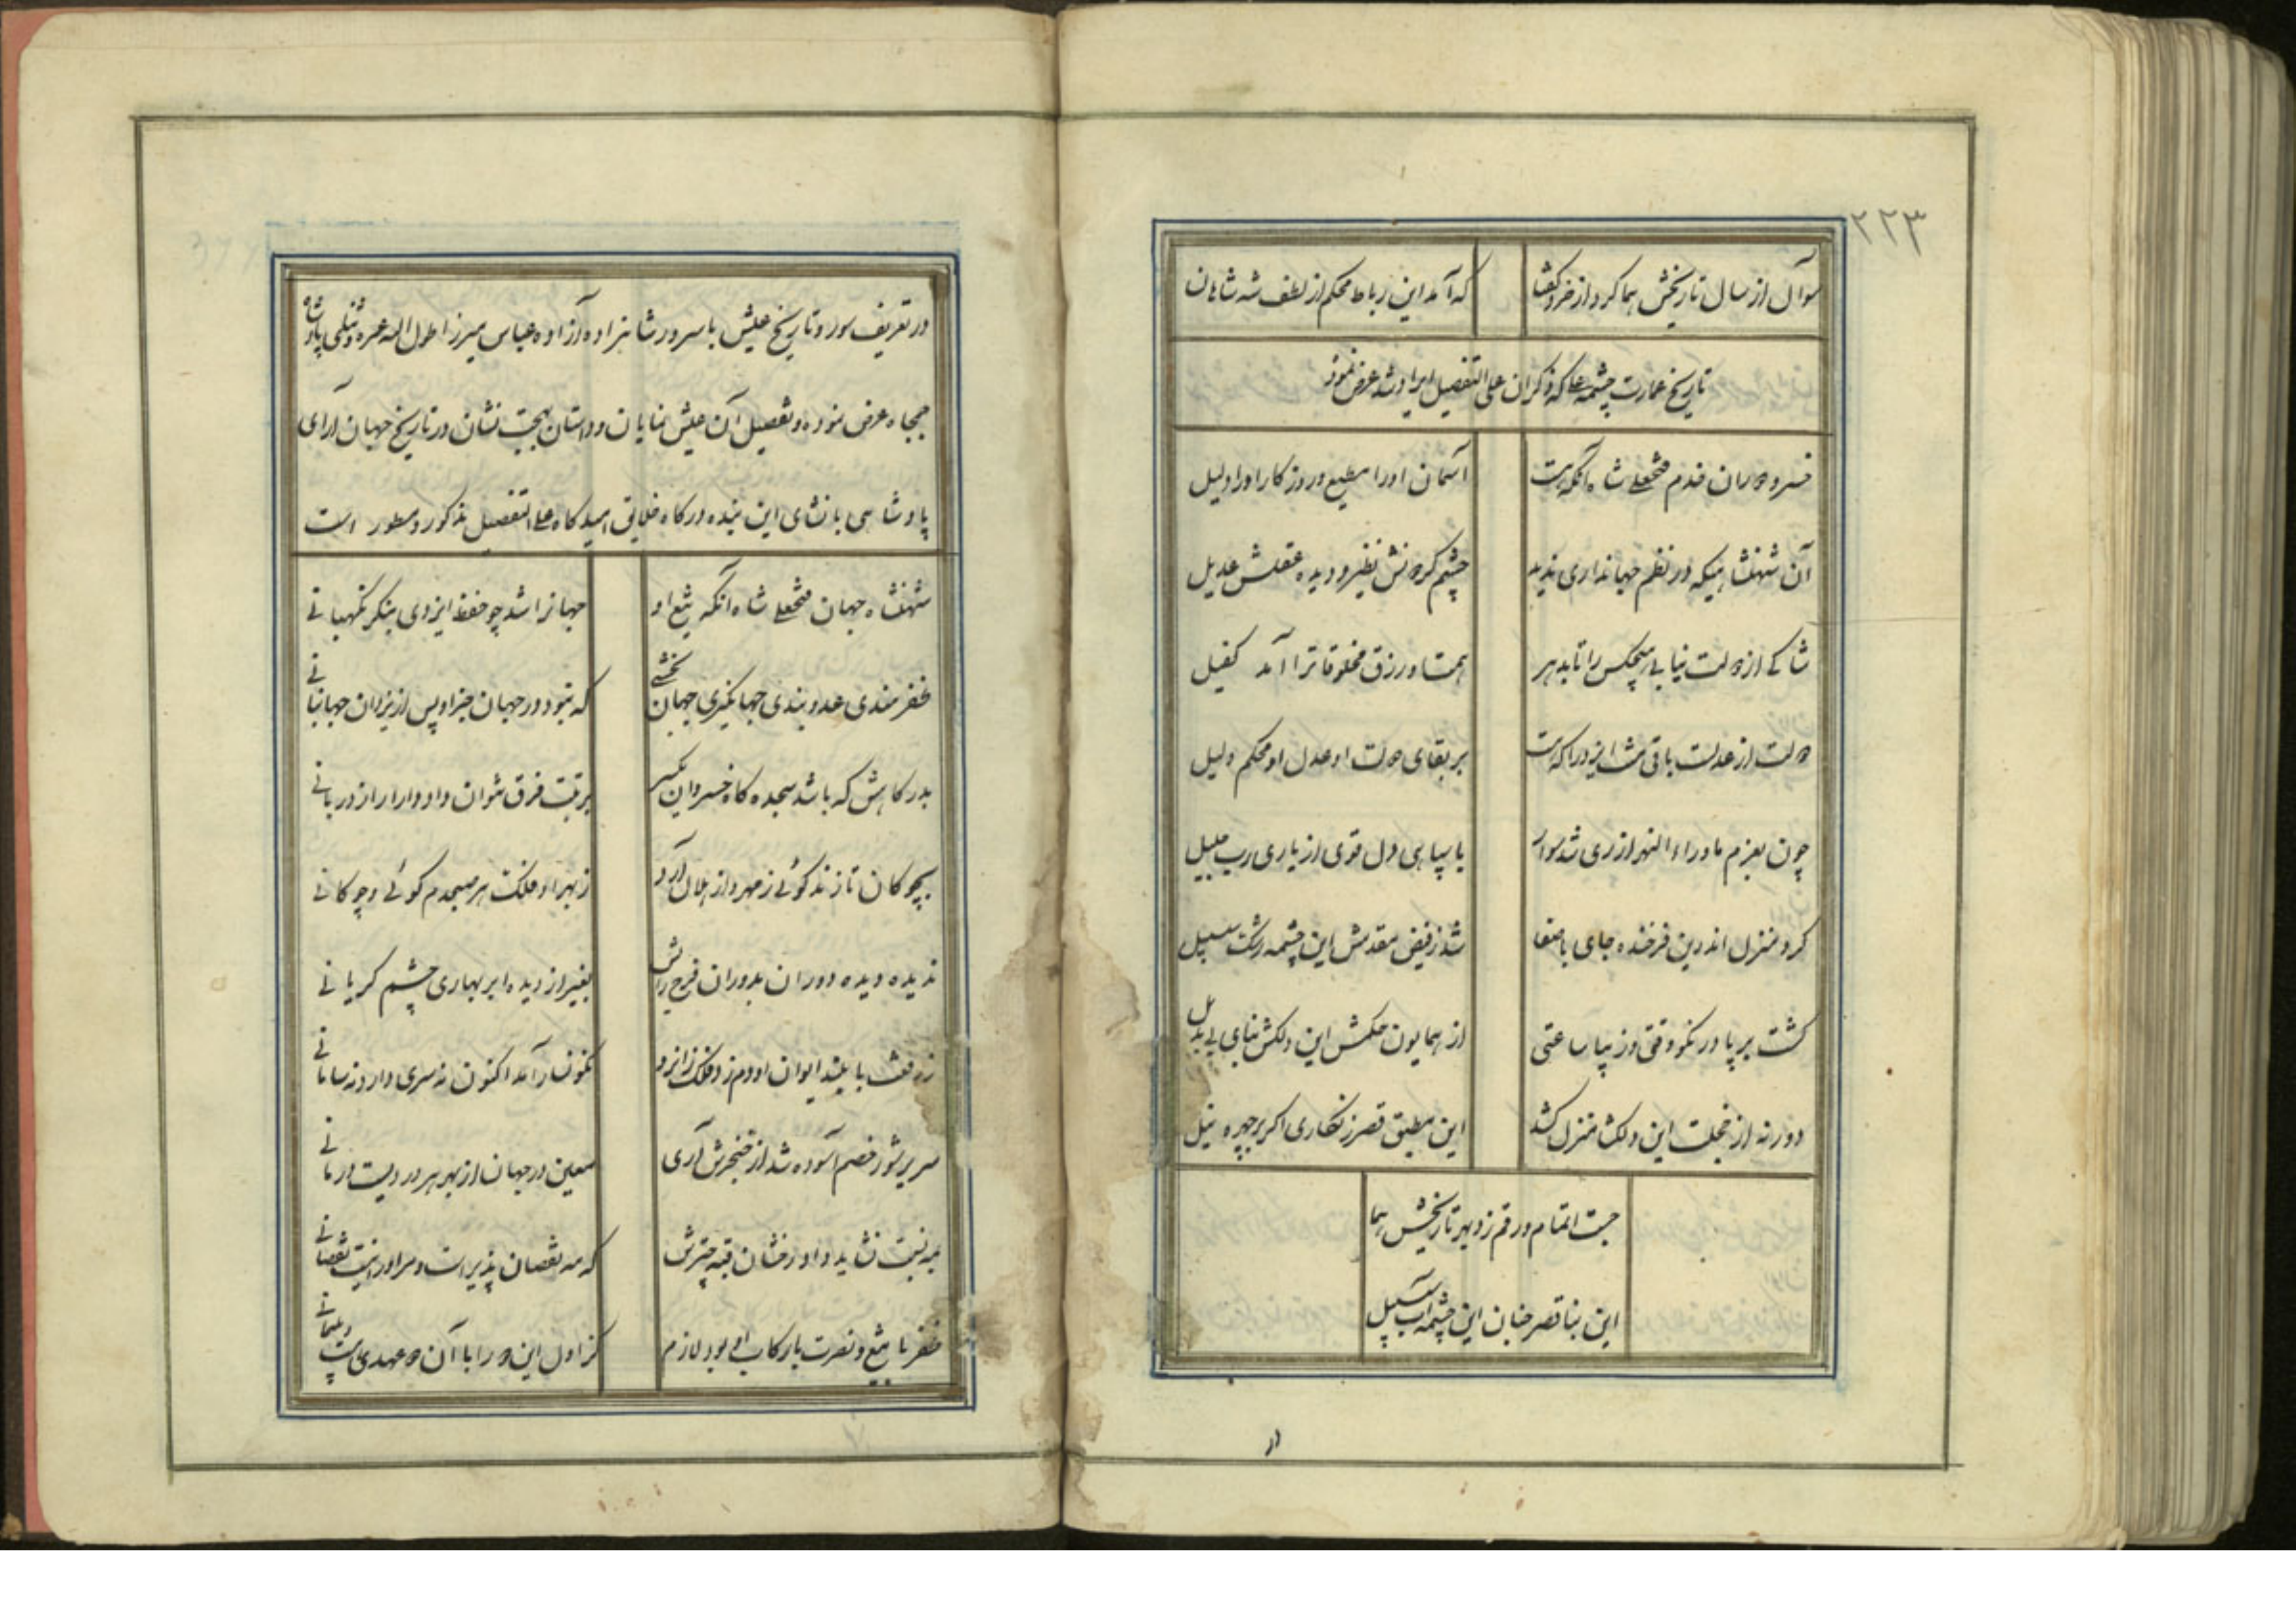 ۲۲۳
سوآل از سال تاریخش هما کرد از خرد گفتا که آمد این رباط محکم از لطف شه شاهان
تاریخ عمارت چشمه علی که ذکر آن علی التفصیل ایراد شد عرض نموذ
خسرو دوران قدم فتحعلی شاه آنکه هست آسمان او را مطیع و روزکار او را دلیل
آن شهنشاهیکه در نظم جهانداری ندید چشم کردونش نظیر و دیده عقلش عدیل
شاکی از دولت نیابی هیچکس را تا بدهر همتش در رزق مخلوقاترا آمد کفیل
دولت از عدلست باقی ایزد را که هست بر بقای دولت او عدل او محکم دلیل
چون بعزم ماوراءالنهر از ری شد سوار با سپاهی دل قوی از یاری رب جلیل
کرد منزل اندرین فرخنده جای با صفا شد ز فیض مقدمش این چشمه رشک سلسبیل
کشت بر پا در نکو وقتی و زیبا ساعتی از همایون حکمش این دلکش بنای بی بدیل
دور نه از خجلت این دلکشا منزل کشد این مطبق قصر زنکاری اکر بر چهره نیل
جست اتمام و رقم زد بهر تاریخش هما
این بنا قصر جنان این چشمه آب سلسبیل
در تعریف سور و تاریخ عیش با سرور شاهزاده آزاده عباس میرزا طول الله عمره و تنکی پادشاه
جمجاه عرض نموده و تفصیل آن عیش نمایان و داستان بهجت نشان در تاریخ جهان آرای
پادشاهی بانشای این بنده درکاه خلایق امیدکاه علی التفصیل مذکور و مسطور است
شهنشاه جهان فتحعلی شاه آنکه تیغ او جهانرا شد چو حفظ ایزدی بنکر نکهبانی
ظفرمندی عدوبندی جهانکیری جهان بخشی که نبود در جهان جز او پس از یزدان جهانبانی
بدرکاهش که باشد سجده کاه خسروان یکسر برتبت فرق نتوان داد دارا را ز دربانی
بچوکان تا زند کوئی ز مهر و از هلال آرد ز بهر او فلک هر صبحدم کوئی و چوکانی
ندیده دیده دوران بدوران فرح زایش بغیر از دیده ابر بهاری چشم کریانی
ز رفعت با بلند ایوان او دم زد فلک زانرو نکونسار آمد اکنون نه سری دارد نه سامانی
سر پر شور خصم آسوده شد از خنجرش آری معین در جهان از بهر هر دردیست درمانی
بمه نسبت نشاید داد رخشان قبه چترش که مه نقصان پذیر است و مر او را نیست نقصانی
ظفر با تیغ و نصرت با رکاب او بود لازم کز اول این دو را با آن دو عهدی هست و پیمانی
در